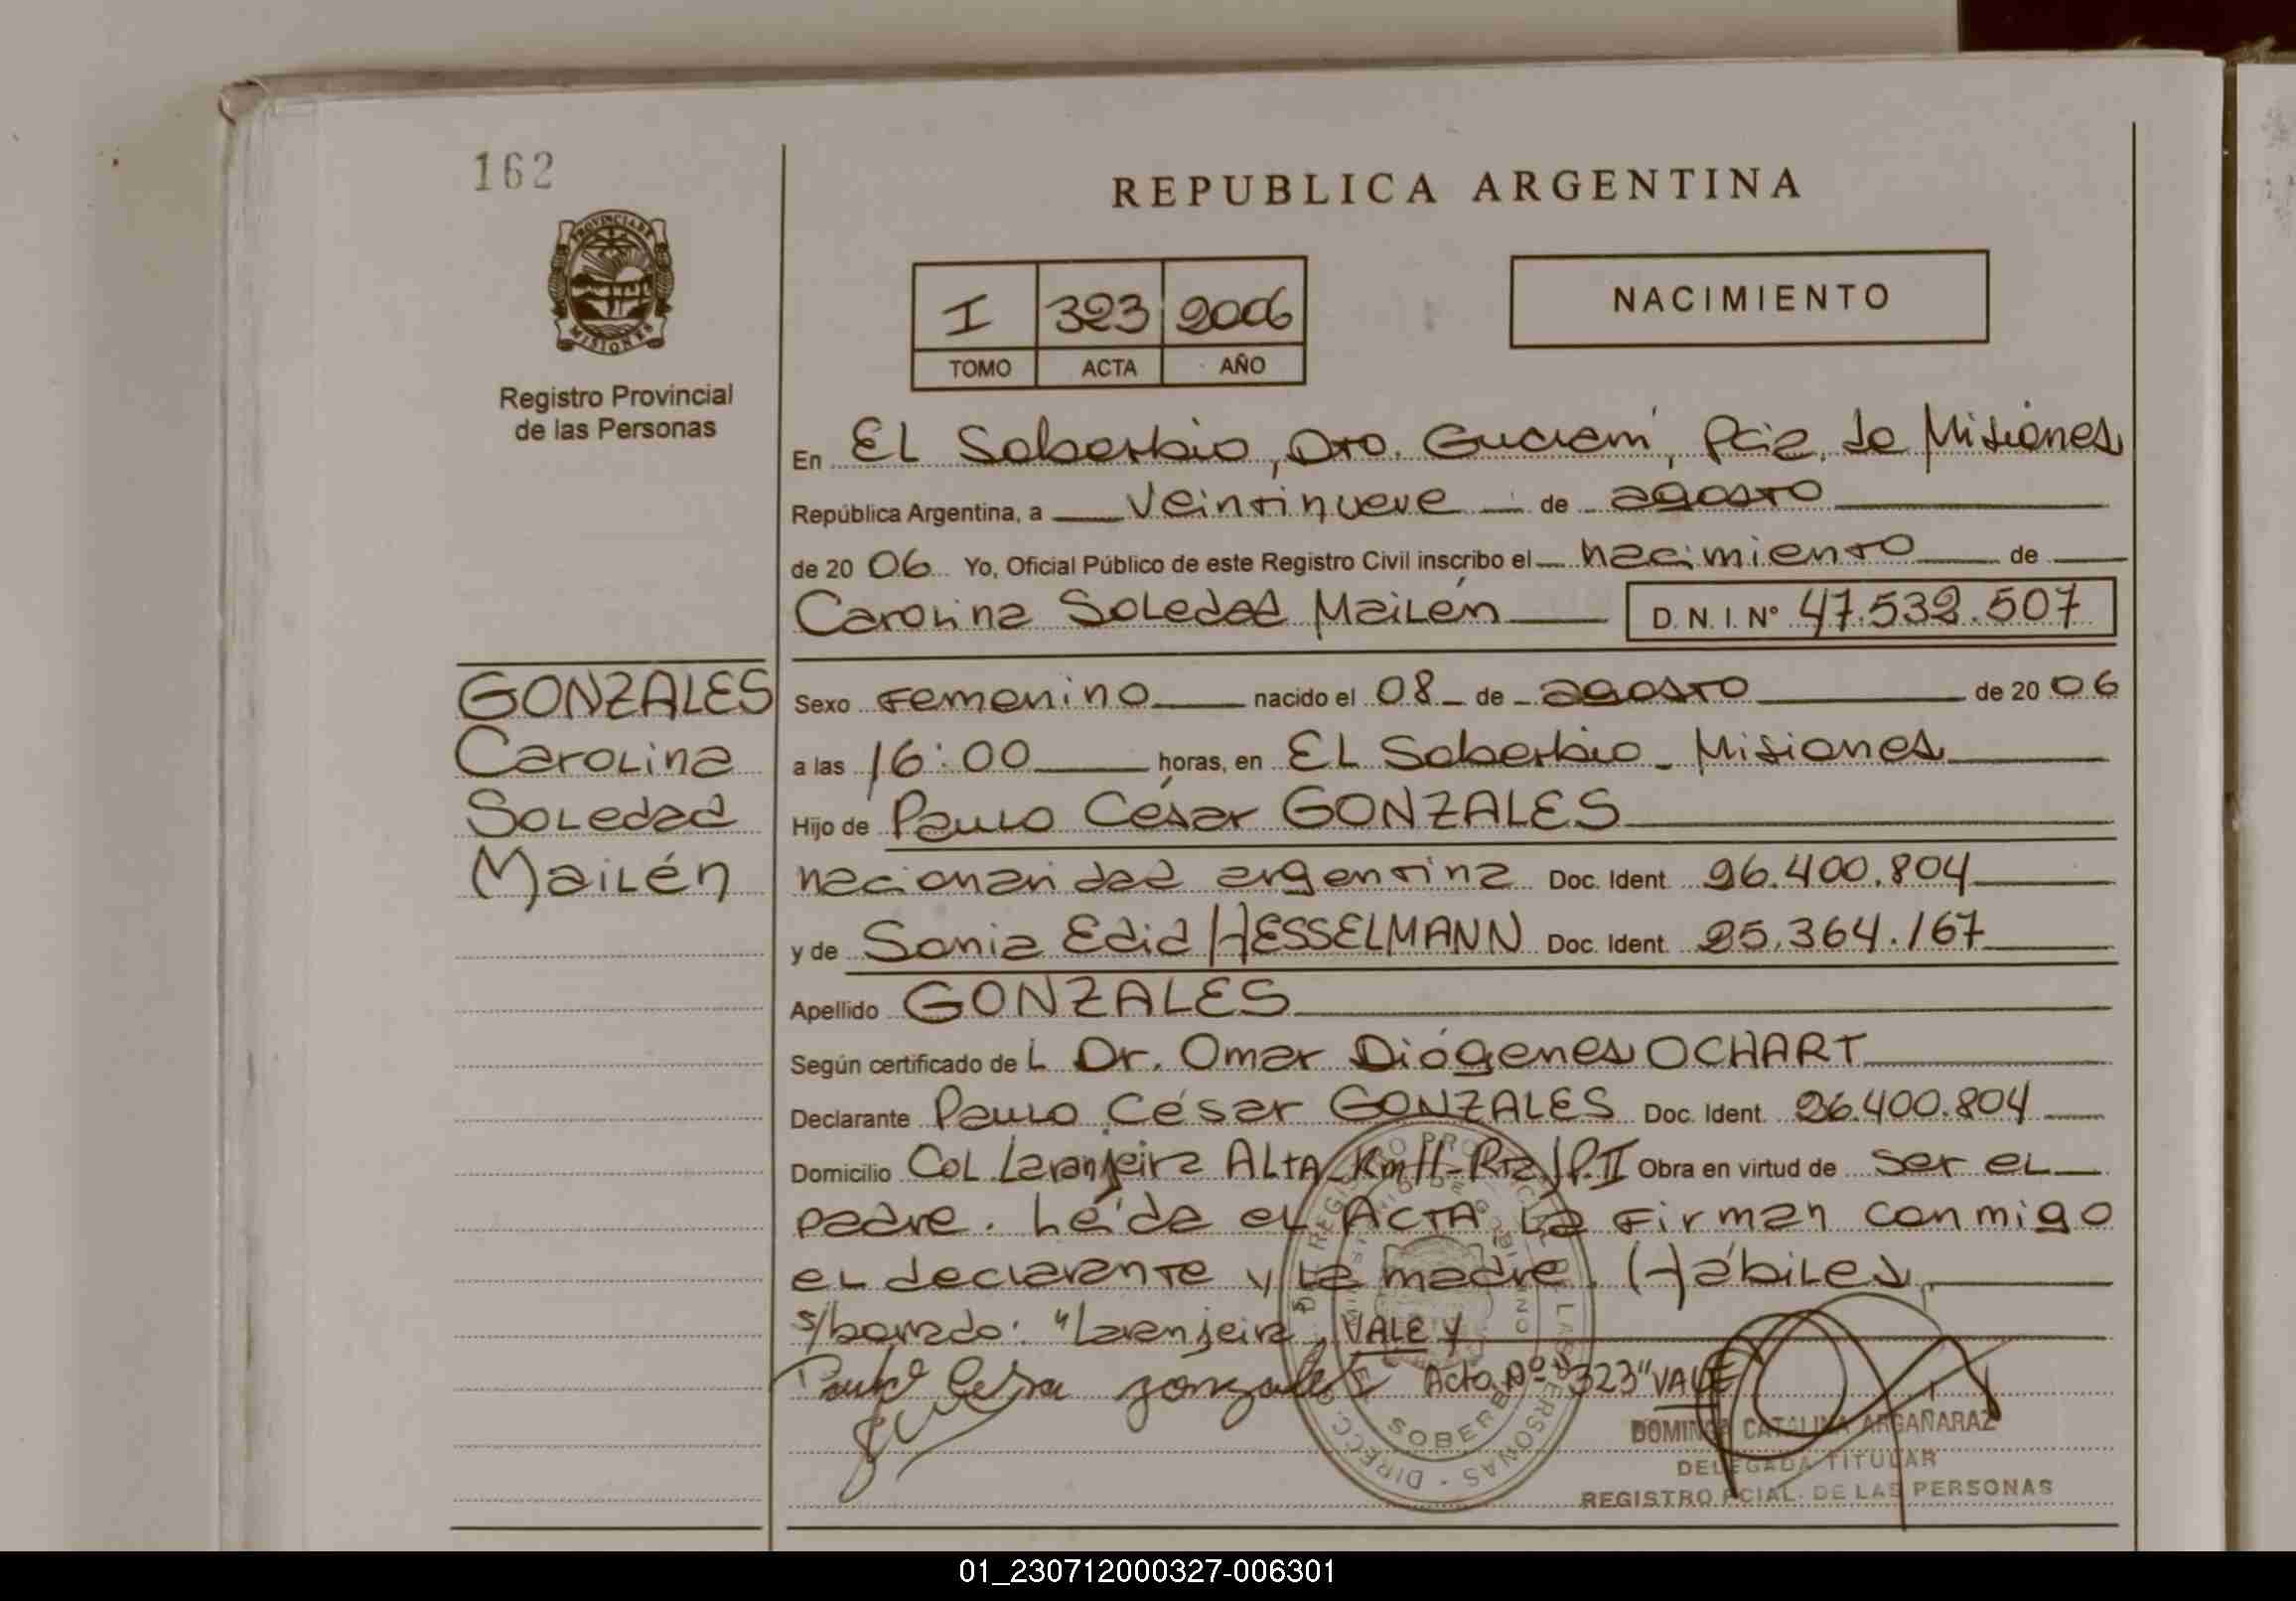 162
REPUBLICA ARGENTINA
PROVINCIA DE
MISIONES
I 323 2006
TOMO ACTA AÑO
NACIMIENTO
Registro Provincial
de las Personas
En EL Soberbio, Dto. Guaraní, Pcia. de Misiones
República Argentina, a veintinueve de agosto
de 20 06 Yo, Oficial Público de este Registro Civil inscribo el nacimiento de
Carolina Soledad Mailén D. N. I. Nº 47.532.507
GONZALES
Carolina
Soledad
Mailén
Sexo Femenino nacido el 08 de agosto de 20 06
a las 16:00 horas, en EL Soberbio - Misiones
Hijo de Paulo César GONZALES
nacionalidad argentina Doc. Ident. 26.400.804
y de Sonia Edid HESSELMANN Doc. Ident. 25.364.167
Apellido GONZALES
Según certificado de L Dr. Omar Diógenes OCHART
Declarante Paulo César GONZALES Doc. Ident. 26.400.804
Domicilio Col. Laranjeira ALTA Km Obra en virtud de ser el
padre. Leída el ACTA la firman conmigo
el declarante y la madre. Hábiles
s/borrado: "Laranjeira, VALE y
Acta Nº "323" VALE
SOBERBIO
DOMINGA CATALINA ARGAÑARAZ
DELEGADA TITULAR
REGISTRO PCIAL. DE LAS PERSONAS
01_230712000327-006301